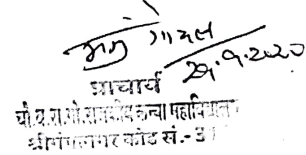 गोयल
29.9.2020
प्राचार्य
चौ.ब.रा.गो.राजकीय कन्या महाविद्यालय
श्रीगंगानगर कोड सं.-3